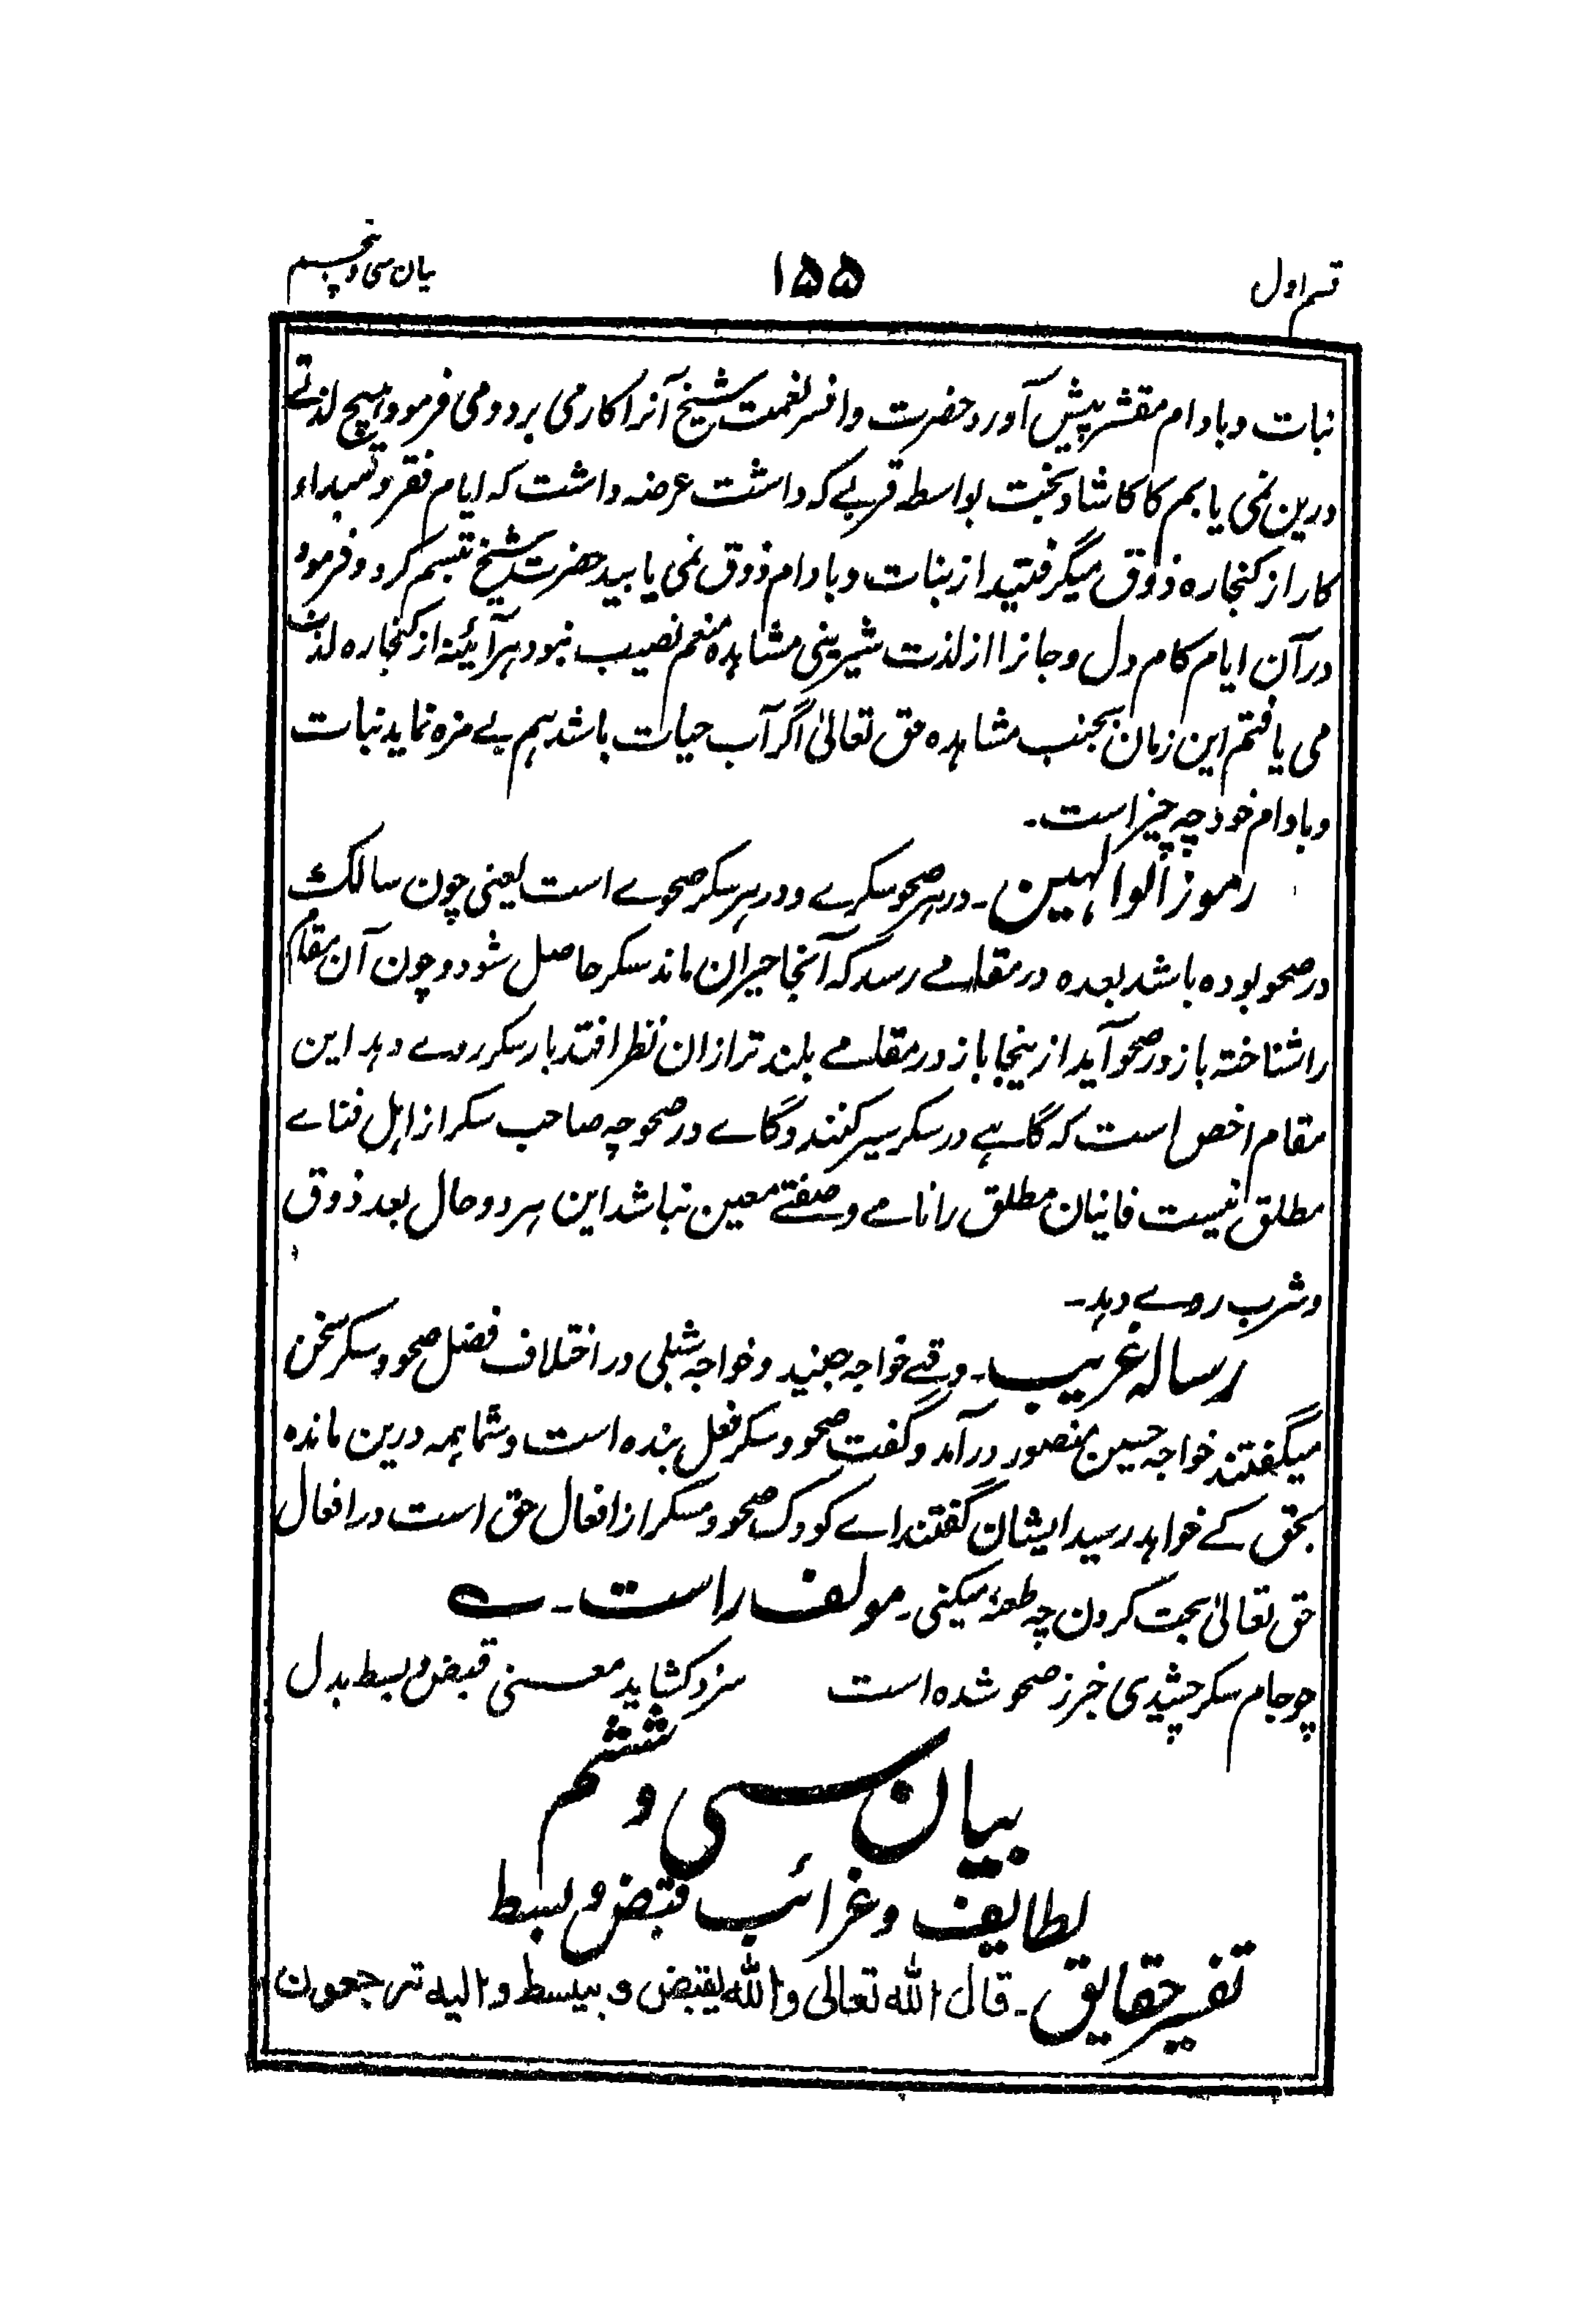 قسم اول ۱۵۵ بیان سی و پنجم
نبات و بادام مقشر پیش آورد حضرت وافر نعمت شیخ آنرا کار می برد و می فرمود هیچ لذتے
درین نمی یابم کاکا شاد بخت بواسطه قربے که داشت عرضه داشت که ایام فقر و مبداء
کار از کنجاره ذوق میگرفتید از نبات و بادام ذوق نمی یابید حضرت شیخ تبسم کرد و فرمود
در آن ایام کام دل و جانرا از لذت شیرینی مشاهده منعم نصیب نبود هر آئینه از کنجاره لذت
می یافتم این زمان بجنب مشاهده حق تعالیٰ اگر آب حیات باشد هم بے مزه نماید نبات
و بادام خود چه چیز است۔
رموز الوالهین۔ در هر صحو سکرے و در هر سکر صحوے است یعنی چون سالک
در صحو بوده باشد بعده در مقامے رسد که آنجا حیران ماند سکر حاصل شود و چون آن مقام
را شناخته باز در صحو آید از ینجا باز در مقامے بلند تر ازان نظر افتد باز سکر روے دهد این
مقام اخص است که گاہے در سکر سیر کنند و گاے در صحو چه صاحب سکر از اهل فناے
مطلق نیست فانیان مطلق را نامے و صفتے معین نباشد این هر دو حال بعد ذوق
و شرب روے دهد۔
رساله غریب۔ وقتے خواجه جنید و خواجه شبلی در اختلاف فضل صحو و سکر سخن
میگفتند خواجه حسین منصور در آمد و گفت صحو و سکر فعل بنده است و شما همه درین مانده
بحق کے خواهد رسید ایشان گفتند اے کودک صحو و سکر از افعال حق است در افعال
حق تعالیٰ بحث کردن چه طعنه میکنی۔ مولف راست۔ ے
چو جام سکر چشیدی خبر ز صحو شده است سزد کشاید معنی قبض و بسط بدل
بیان سی و ششم
لطایف و غرائب قبض و بسط
تفسیر حقایق۔ قال الله تعالی والله یقبض و یبسط والیه ترجعون